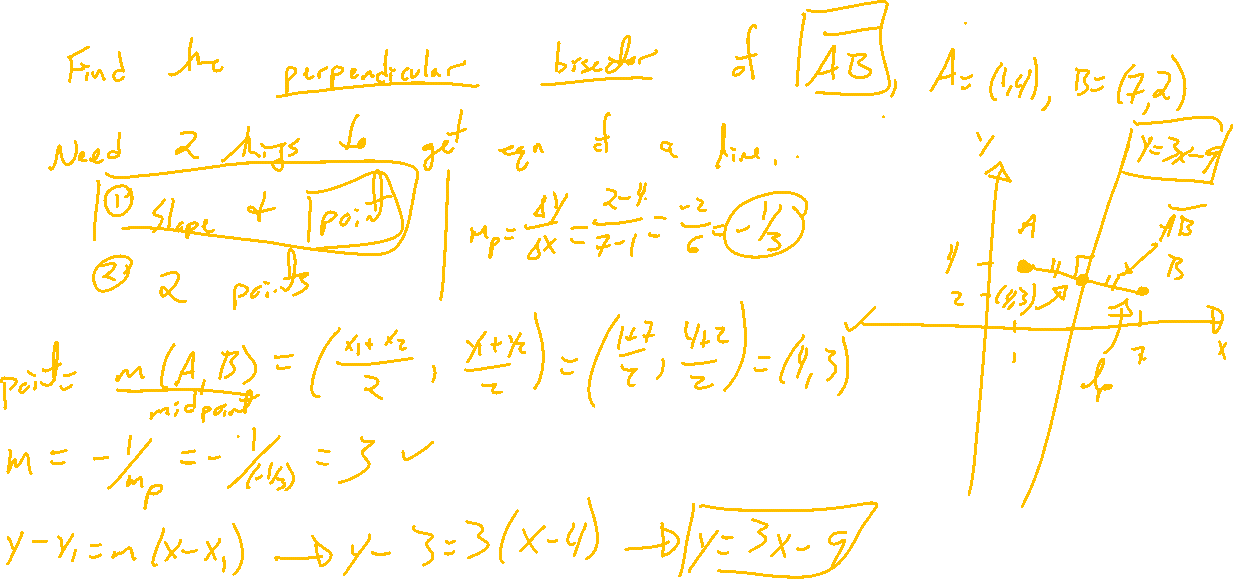 Find the perpendicular bisector of AB, A = (1,4), B = (7,2)
Need 2 things to get eqn of a line...
① Slope & point
② 2 points
Mp = ΔY/ΔX = 2-4/7-1 = -2/6 = -1/3
point = m(A,B) = (x1+x2/2, y1+y2/2) = (1+7/2, 4+2/2) = (4,3) ✓
midpoint
m = -1/mp = -1/(-1/3) = 3 ✓
y-y1 = m(x-x1) → y-3=3(x-4) → y=3x-9
y=3x-9
Y
A
AB
B
4
2
(4,3)
1
7
X
lp